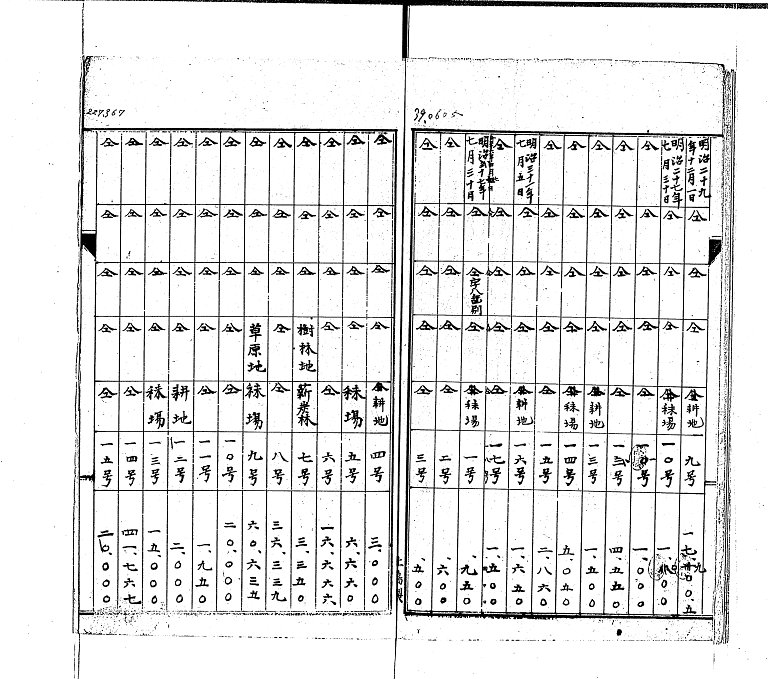 39.0605
明治二十九年十二月一日 仝 仝 仝 仝耕地 九号
明治二十七年七月三十日 仝 仝 仝 秣場 一〇号
仝 仝 仝 仝 仝 一.〇〇〇
仝 仝 仝 仝 仝 一三号 四.五五〇
仝 仝 仝 仝 耕地 一三号 一.五〇〇
仝 仝 仝 仝 秣場 一四号 五.〇五〇
仝 仝 仝 仝 仝 一五号 二.八六〇
明治三十一年七月五日 仝 仝 仝 耕地 一六号 一.六五〇
仝 仝 仝 仝 仝 一七号 一.五〇〇
七月三十日 仝 仝 仝 秣場 一号 .九五〇
仝 仝 仝 仝 仝 二号 .六〇〇
仝 仝 仝 仝 仝 三号 .五〇〇
227.367
仝 仝 仝 仝 耕地 四号 三.〇〇〇
仝 仝 仝 仝 秣場 五号 六.六六〇
仝 仝 仝 仝 仝 六号 一六.六六六
仝 仝 仝 樹林地 薪炭林 七号 三.三五〇
仝 仝 仝 仝 仝 八号 三六.三三九
仝 仝 仝 草原地 秣場 九号 六〇.六三五
仝 仝 仝 仝 仝 一〇号 二〇.〇〇〇
仝 仝 仝 仝 仝 一一号 一.九五〇
仝 仝 仝 仝 耕地 一二号 二.〇〇〇
仝 仝 仝 仝 秣場 一三号 一五.〇〇〇
仝 仝 仝 仝 仝 一四号 四一.七六七
仝 仝 仝 仝 仝 一五号 二〇.〇〇〇